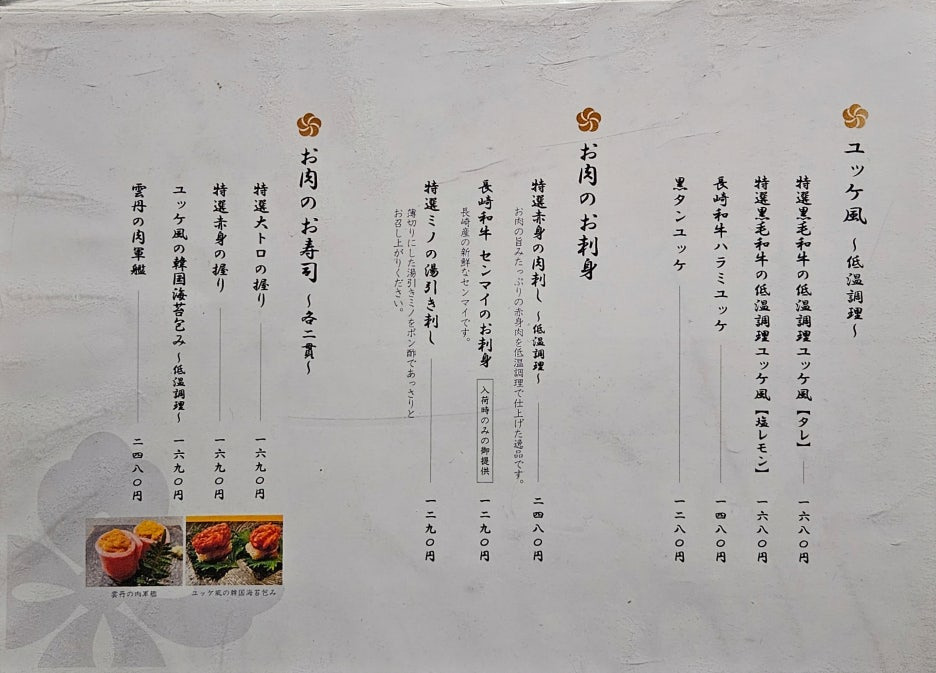 ユッケ風 ～低温調理～
特選黒毛和牛の低温調理ユッケ風【タレ】 一六八〇円
特選黒毛和牛の低温調理ユッケ風【塩レモン】 一六八〇円
長崎和牛ハラミユッケ 一四八〇円
黒タンユッケ 一二八〇円
お肉のお刺身
特選赤身の肉刺し ～低温調理～ 二四八〇円
お肉の旨みたっぷりの赤身肉を低温調理で仕上げた逸品です。
長崎和牛 センマイのお刺身 入荷時のみの御提供 一二九〇円
長崎産の新鮮なセンマイです。
特選ミノの湯引き刺し 一二九〇円
薄切りにした湯引きミノをポン酢であっさりと
お召し上がりください。
お肉のお寿司 ～各二貫～
特選大トロの握り 一六九〇円
特選赤身の握り 一六九〇円
ユッケ風の韓国海苔包み ～低温調理～ 一六九〇円
雲丹の肉軍艦 二四八〇円
雲丹の肉軍艦
ユッケ風の韓国海苔包み